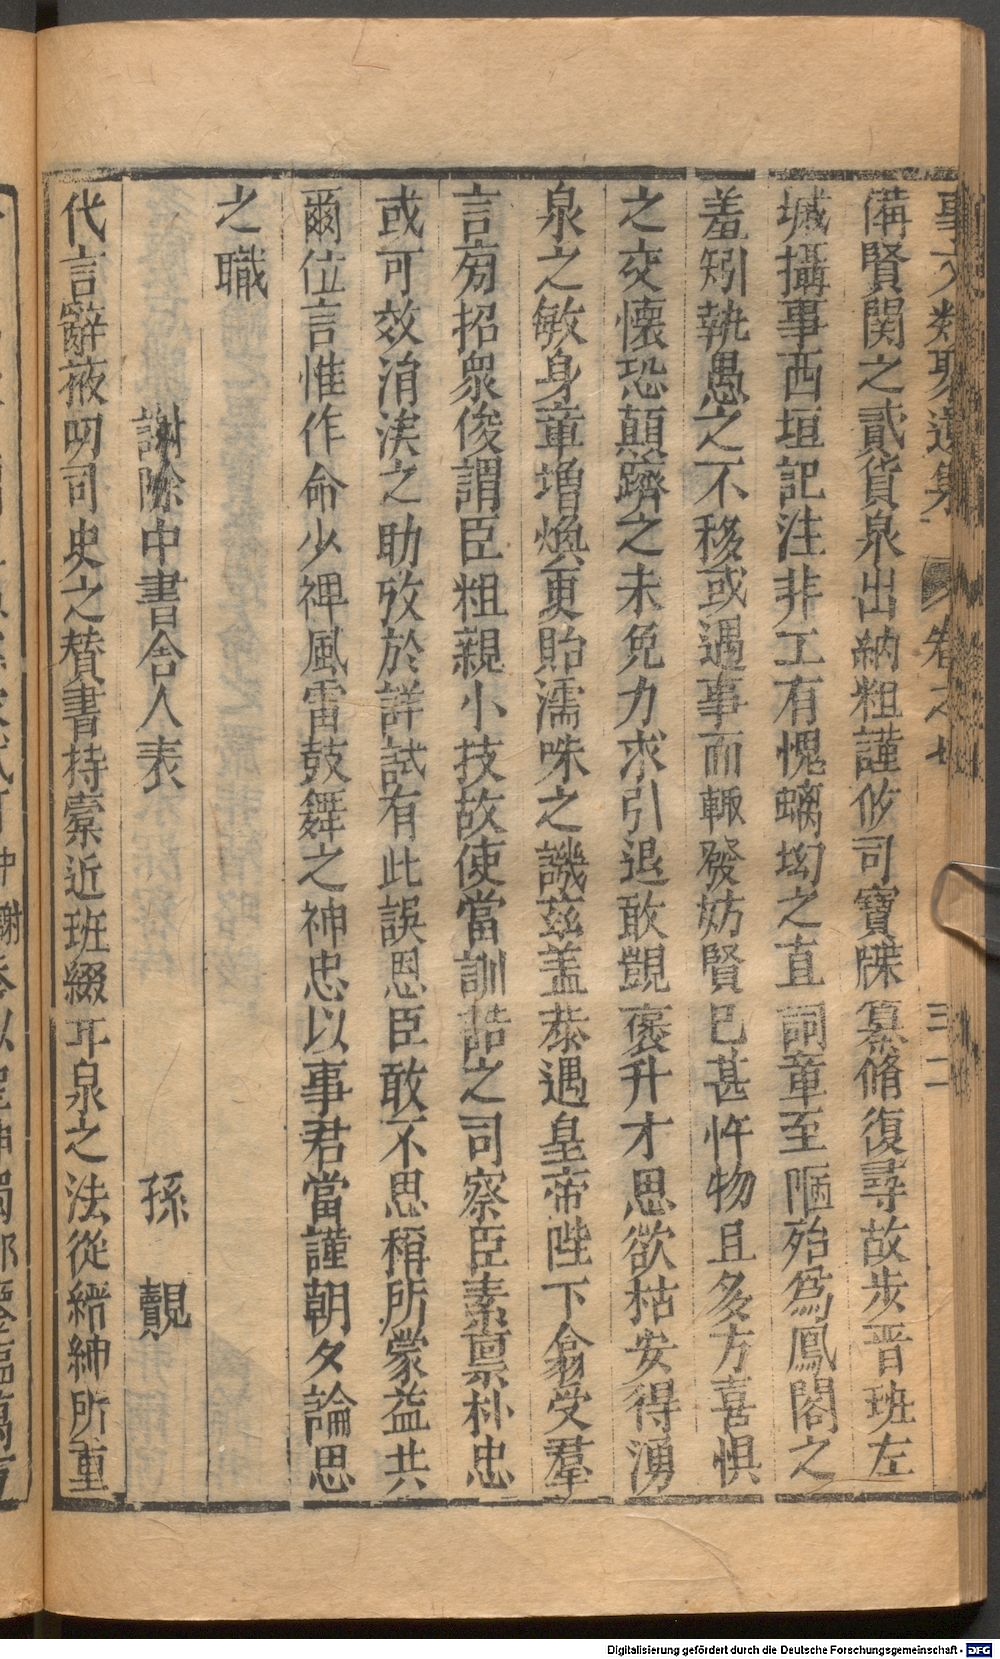 事文類聚遺集 卷之七 三二
備賢関之貳貨泉出納粗謹攸司寶牒纂脩復尋故步晋班左
堿攝事西垣記注非工有愧螭坳之直詞章至陋殆爲鳳閣之
羞矧執愚之不移或遇事而輙發妨賢已甚忤物且多方喜惧
之交懐恐顛躋之未免力求引退敢覬褒升才思欲枯安得湧
泉之敏身章增煥更貽濡咮之譏茲盖恭遇皇帝陛下翕受羣
言旁招衆俊謂臣粗親小技故使當訓誥之司察臣素禀朴忠
或可效涓涘之助攷於詳試有此誤恩臣敢不思稱所蒙益共
爾位言惟作命少裨風雷鼓舞之神忠以事君當謹朝夕論思
之職
謝除中書舍人表 孫 覿
代言辭掖叨司史之賛書持橐近班綴平泉之法從縉紳所重